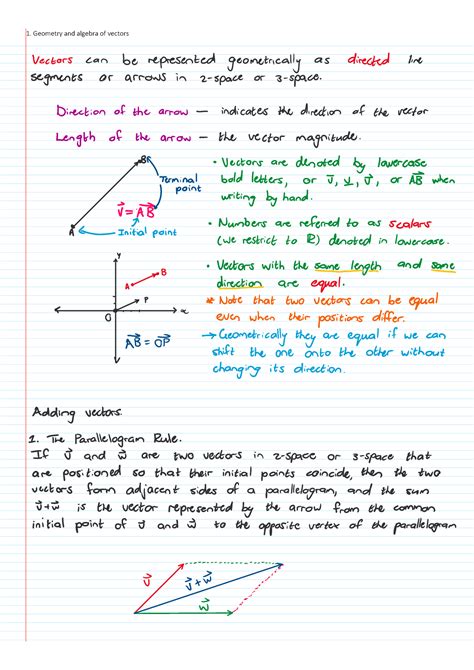 1. Geometry and algebra of vectors
Vectors can be represented geometrically as directed line
segments or arrows in 2-space or 3-space.
Direction of the arrow — indicates the direction of the vector
Length of the arrow — the vector magnitude.
B
Terminal
point
v⃗ = AB⃗
A
Initial point
• Vectors are denoted by lowercase
bold letters, or v⃗, v̰, v⃗, or AB⃗ when
writing by hand.
• Numbers are referred to as scalars
(we restrict to ℝ) denoted in lowercase.
y
B
A
P
O
x
AB⃗ = OP⃗
• Vectors with the same length and same
direction are equal.
* Note that two vectors can be equal
even when their positions differ.
→ Geometrically they are equal if we can
shift the one onto the other without
changing its direction.
Adding vectors.
1. The Parallelogram Rule.
If v⃗ and w⃗ are two vectors in 2-space or 3-space that
are positioned so that their initial points coincide, then the two
vectors form adjacent sides of a parallelogram, and the sum
v⃗+w⃗ is the vector represented by the arrow from the common
initial point of v⃗ and w⃗ to the opposite vertex of the parallelogram
v⃗
v⃗+w⃗
w⃗